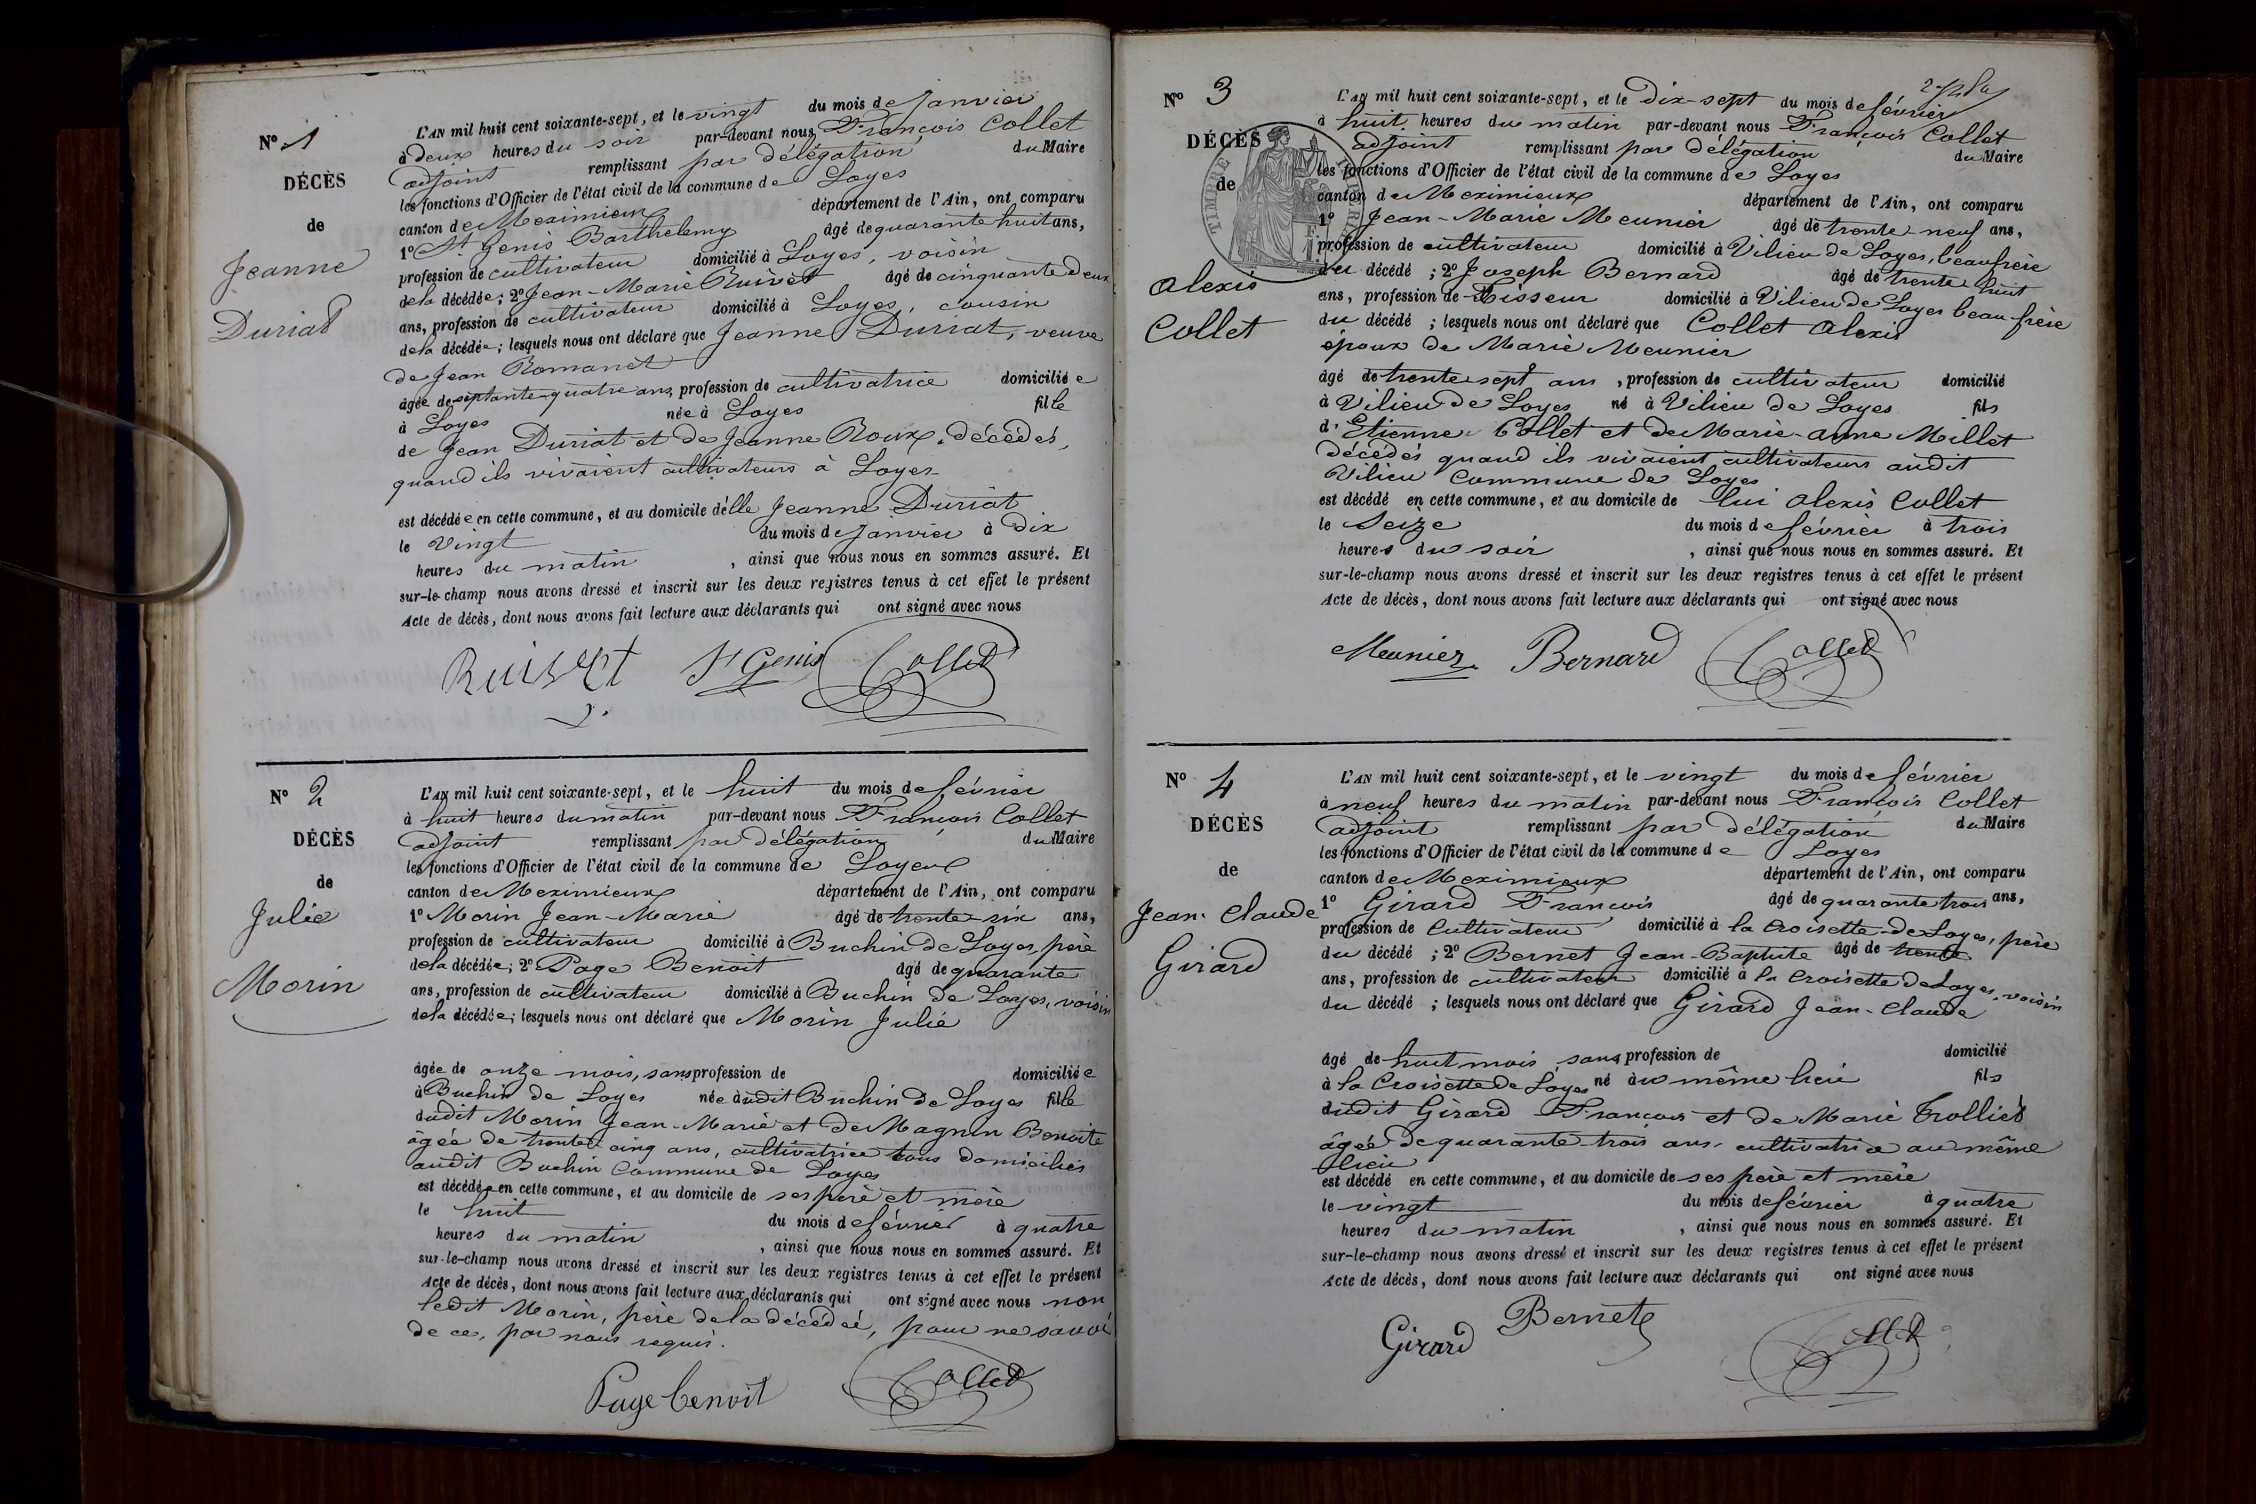 N° 1
DÉCÈS
de
Jeanne
Duriat
L'AN mil huit cent soixante-sept, et le vingt du mois de janvier
à deux heures du soir par-devant nous François Collet
adjoint remplissant par délégation du Maire
les fonctions d'Officier de l'état civil de la commune de Loyes
canton de Meximieux département de l'Ain, ont comparu
1° St Genis Barthelemy âgé de quarante huit ans,
profession de cultivateur domicilié à Loyes, voisin
de la décédée; 2° Jean-Marie Ruivet âgé de cinquante deux
ans, profession de cultivateur domicilié à Loyes, cousin
de la décédée; lesquels nous ont déclaré que Jeanne Duriat, veuve
de Jean Romanet
âgée de septante-quatre ans, profession de cultivatrice domiciliée
à Loyes née à Loyes fille
de Jean Duriat et de Jeanne Roux, décédés,
quand ils vivaient cultivateurs à Loyes
est décédée en cette commune, et au domicile d'elle Jeanne Duriat
le vingt du mois de janvier à dix
heures du matin, ainsi que nous nous en sommes assuré. Et
sur-le-champ nous avons dressé et inscrit sur les deux registres tenus à cet effet le présent
Acte de décès, dont nous avons fait lecture aux déclarants qui ont signé avec nous
Ruivet St Genis Collet
N° 2
DÉCÈS
de
Julie
Morin
L'AN mil huit cent soixante-sept, et le huit du mois de février
à huit heures du matin par-devant nous François Collet
adjoint remplissant par délégation du Maire
les fonctions d'Officier de l'état civil de la commune de Loyes
canton de Meximieux département de l'Ain, ont comparu
1° Morin Jean-Marie âgé de trente-six ans,
profession de cultivateur domicilié à Buchin de Loyes, père
de la décédée; 2° Page Benoit âgé de quarante
ans, profession de cultivateur domicilié à Buchin de Loyes, voisin
de la décédée; lesquels nous ont déclaré que Morin Julie
âgée de onze mois, sans profession de domiciliée
à Buchin de Loyes née audit Buchin de Loyes fille
dudit Morin Jean-Marie et de Magnin Benoite
âgée de trente cinq ans, cultivatrice tous domiciliés
audit Buchin Commune de Loyes
est décédée en cette commune, et au domicile de ses père et mère
le huit du mois de février à quatre
heures du matin, ainsi que nous nous en sommes assuré. Et
sur-le-champ nous avons dressé et inscrit sur les deux registres tenus à cet effet le présent
Acte de décès, dont nous avons fait lecture aux déclarants qui ont signé avec nous non
ledit Morin, père de la décédée, pour ne savoir
de ce, par nous requis.
Page benoit Collet
N° 3
DÉCÈS
de
Alexis
Collet
TIMBRE IMPERIAL
L'AN mil huit cent soixante-sept, et le dix-sept du mois de février
à huit heures du matin par-devant nous François Collet
adjoint remplissant par délégation du Maire
les fonctions d'Officier de l'état civil de la commune de Loyes
canton de Meximieux département de l'Ain, ont comparu
1° Jean-Marie Meunier âgé de trente-neuf ans,
profession de cultivateur domicilié à Vilieu de Loyes, beaufrère
du décédé; 2° Joseph Bernard âgé de trente huit
ans, profession de Tisseur domicilié à Vilieu de Loyes beau frère
du décédé; lesquels nous ont déclaré que Collet Alexis
époux de Marie Meunier
âgé de trente sept ans, profession de cultivateur domicilié
à Vilieu de Loyes né à Vilieu de Loyes fils
d'Etienne Collet et de Marie-anne Millet
décédés quand ils vivaient cultivateurs audit
Vilieu Commune de Loyes
est décédé en cette commune, et au domicile de lui Alexis Collet
le Seize du mois de février à trois
heures du soir, ainsi que nous nous en sommes assuré. Et
sur-le-champ nous avons dressé et inscrit sur les deux registres tenus à cet effet le présent
Acte de décès, dont nous avons fait lecture aux déclarants qui ont signé avec nous
Meunier Bernard Collet
N° 4
DÉCÈS
de
Jean-Claude
Girard
L'AN mil huit cent soixante-sept, et le vingt du mois de février
à neuf heures du matin par-devant nous François Collet
adjoint remplissant par délégation du Maire
les fonctions d'Officier de l'état civil de la commune de Loyes
canton de Meximieux département de l'Ain, ont comparu
1° Girard François âgé de quarante trois ans,
profession de Cultivateur domicilié à la Croisette de Loyes, père
du décédé; 2° Bernet Jean-Baptiste âgé de trente
ans, profession de cultivateur domicilié à la Croisette de Loyes, voisin
du décédé; lesquels nous ont déclaré que Girard Jean-Claude
âgé de huit mois, sans profession de domicilié
à la Croisette de Loyes né au même lieu fils
dudit Girard François et de Marie Trolliet
âgée de quarante-trois ans, cultivatrice au même
lieu
est décédé en cette commune, et au domicile de ses père et mère
le vingt du mois de février à quatre
heures du matin, ainsi que nous nous en sommes assuré. Et
sur-le-champ nous avons dressé et inscrit sur les deux registres tenus à cet effet le présent
Acte de décès, dont nous avons fait lecture aux déclarants qui ont signé avec nous
Girard Bernet Collet